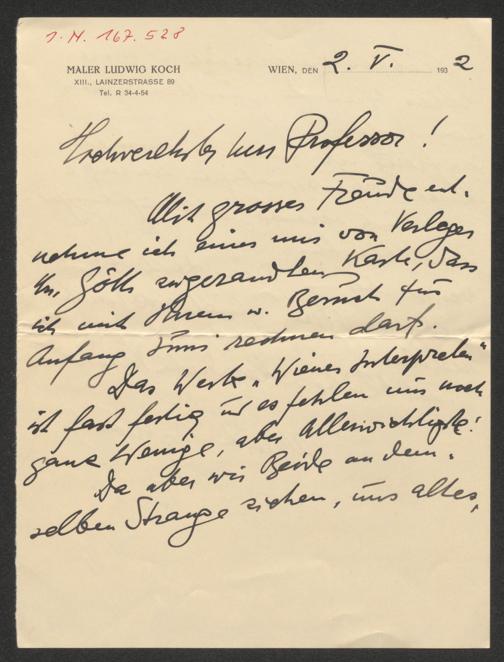 I.N. 167.528
MALER LUDWIG KOCH
XIII., LAINZERSTRASSE 89
Tel. R 34-4-54
WIEN, DEN 2. V. 1932
Hochverehrter Herr Professor!
Mit grosser Freude ent-
nehme ich einer mir von Verleger
Hn. Göth zugesandten Karte, dass
ich mit Ihrem w. Besuch für
Anfang Juni rechnen darf.
Das Werk „Wiener Interpreten"
ist fast fertig und es fehlen nur noch
ganz Wenige, aber Allerwichtigste!
Da aber wir Beide an dem-
selben Strange ziehen, uns alles,